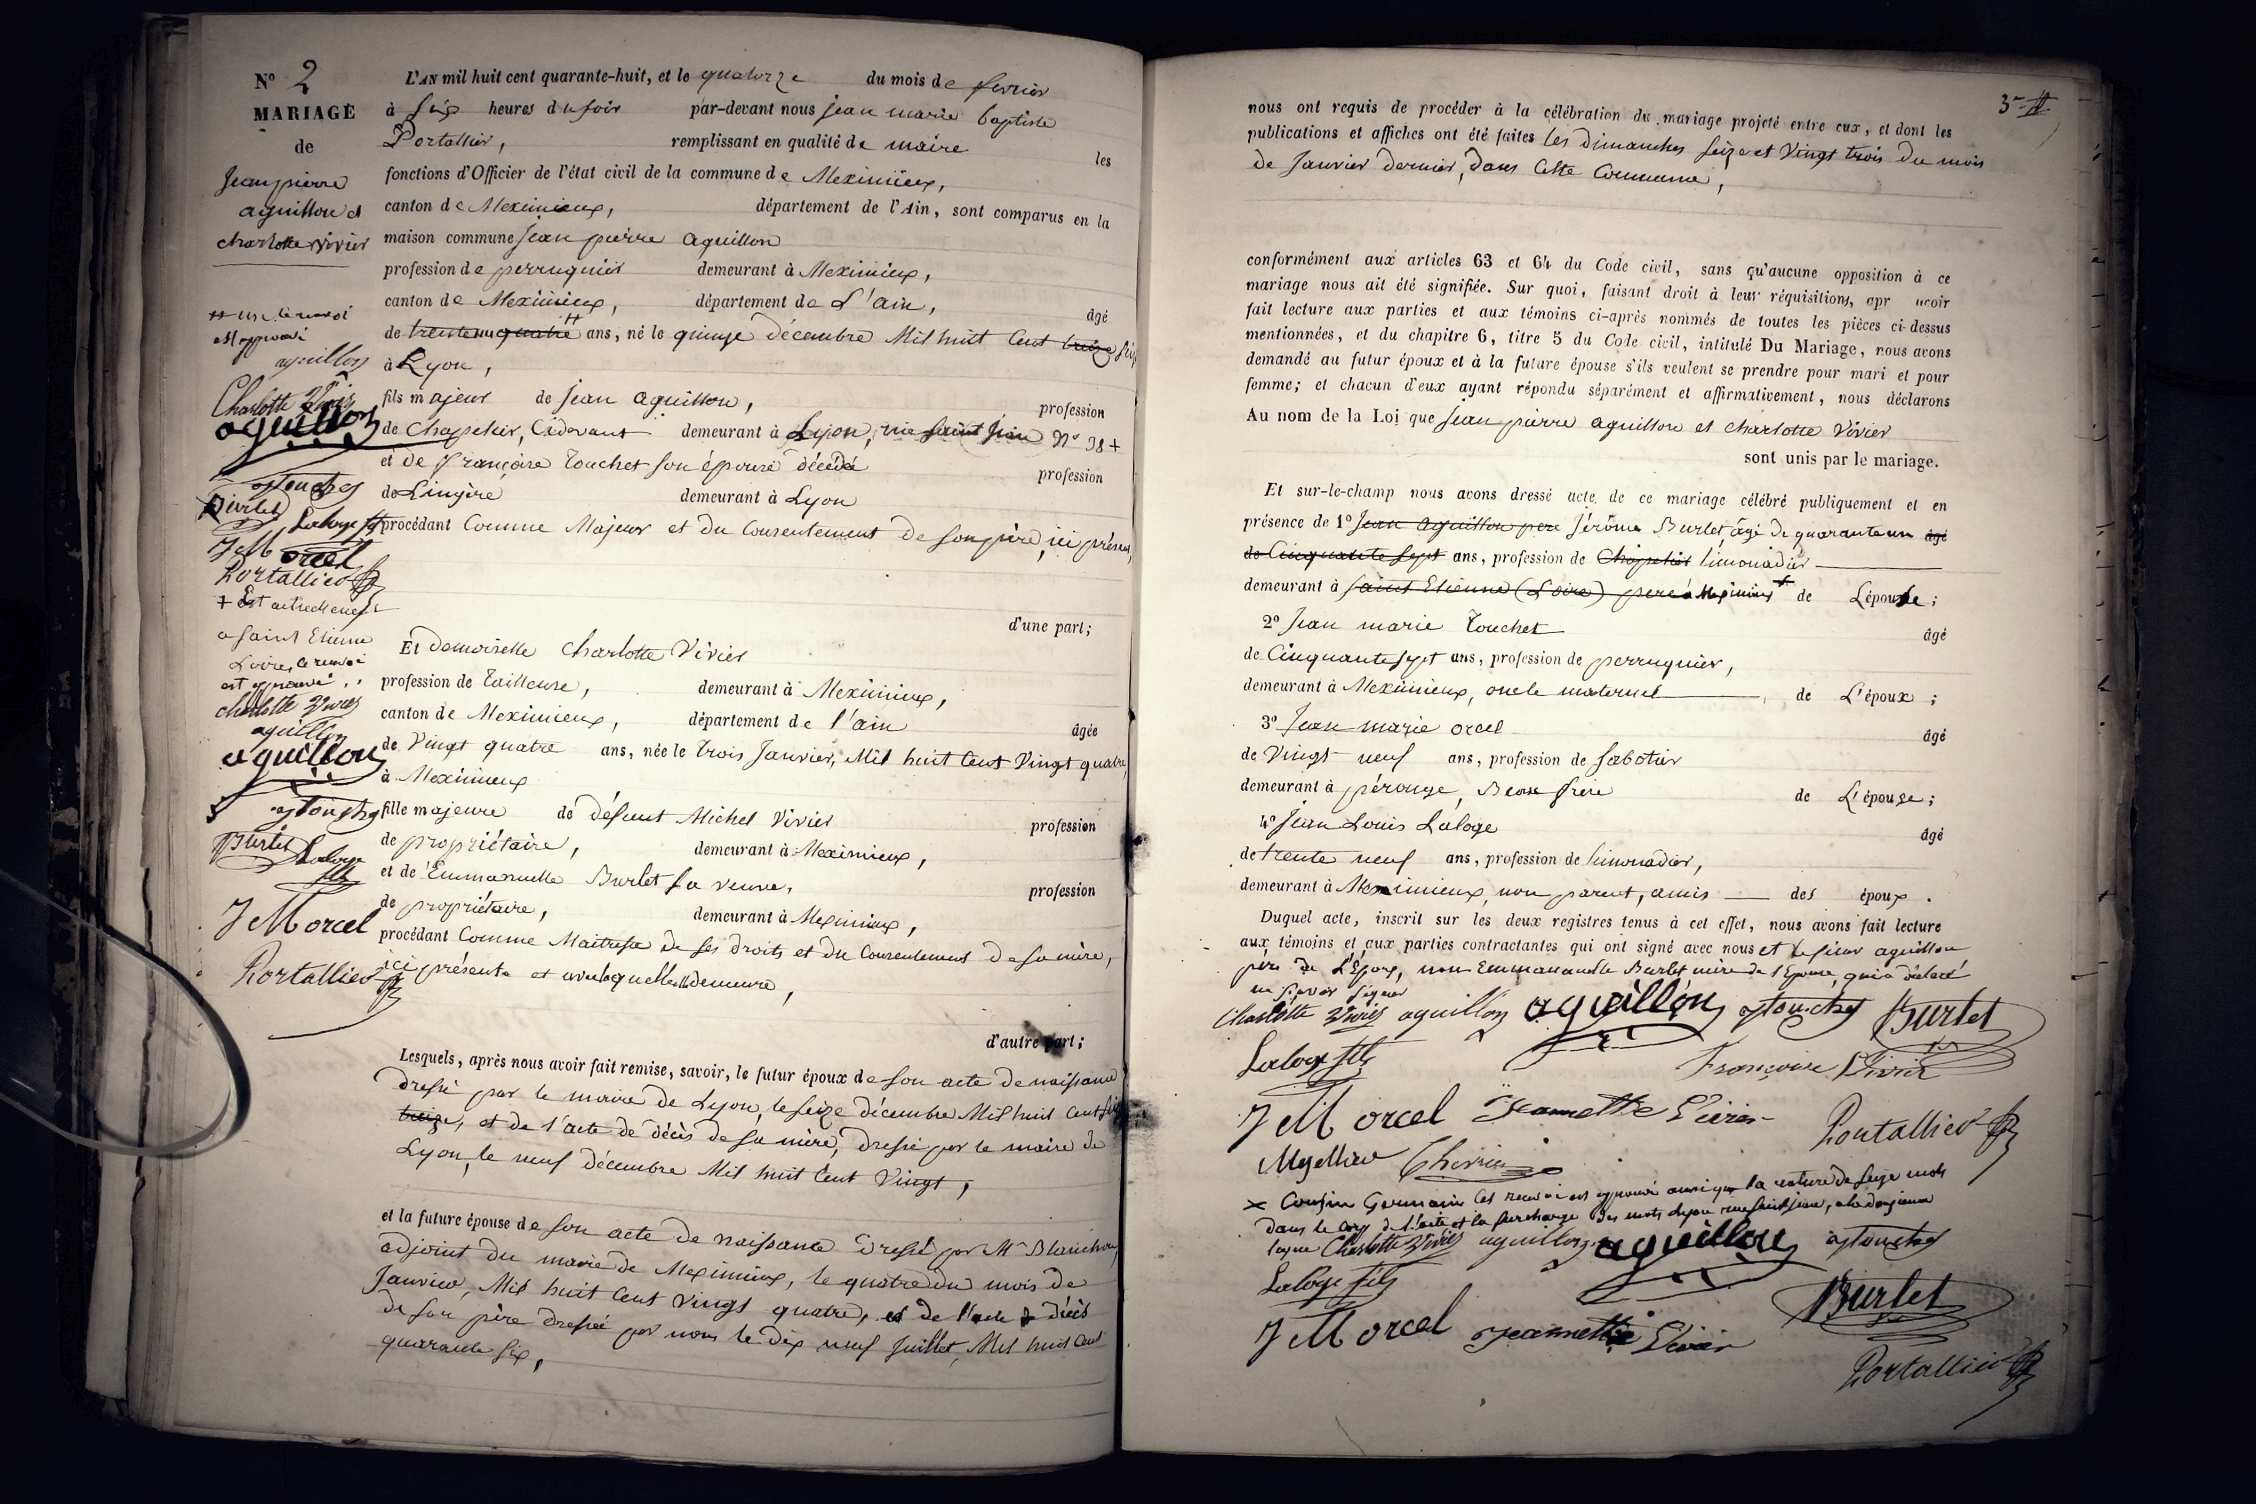 Nº 2
MARIAGE
de
Jean pierre
aguillon et
charlotte vivier
L'AN mil huit cent quarante-huit, et le quatorze du mois de fevrier
à six heures du soir par-devant nous jean marie baptiste
Portallier, remplissant en qualité de maire les
fonctions d'Officier de l'état civil de la commune de Meximieux,
canton de Meximieux, département de l'Ain, sont comparus en la
maison commune Jean pierre aguillon
profession de perruquier demeurant à Meximieux,
canton de Meximieux, département de L'ain, âgé
de trente quatre ans, né le quinze décembre Mil huit Cent treize
à Lyon,
fils majeur de Jean aguillon, profession
de Chapelier, Cidevant demeurant à Lyon, rue saint Jean Nº 38 +
et de françoise Touchet son épouse décédée profession
de Lingère demeurant à Lyon
procédant Comme Majeur et du Consentement de son père, ici présent,
d'une part;
Et demoiselle Charlotte Vivier
profession de Tailleuse, demeurant à Meximieux,
canton de Meximieux, département de l'ain âgée
de Vingt quatre ans, née le trois Janvier, Mil huit Cent Vingt quatre,
à Meximieux
fille majeure de défunt Michel Vivier profession
de propriétaire, demeurant à Meximieux,
et de Emmanuelle Burlet sa veuve, profession
de propriétaire, demeurant à Meximieux,
procédant Comme Maitresse de ses droits et du Consentement de sa mère,
ici présente et avec laquelle elle demeure,
d'autre part;
Lesquels, après nous avoir fait remise, savoir, le futur époux de son acte de naissance
dressé par le maire de Lyon, le seize décembre Mil huit Cent
treize, et de l'acte de décès de sa mère, dressé par le maire de
Lyon, le neuf décembre Mil huit Cent Vingt,
et la future épouse de son acte de naissance dressé par Mr Blanchon,
adjoint du maire de Meximieux, le quatre du mois de
Janvier, Mil huit Cent Vingt quatre, et de l'acte de décès
de son père dressé par nous le dix neuf Juillet, Mil huit Cent
quarante six,
le renvoi
est approuvé
aguillon
Charlotte Vivier
aguillon
Touchet
Burlet
Laloge fils
J M orcel
Portallier
+ Est actuellement
a Saint Etienne
Loire, le renvoi
est approuvé
charlotte Vivier
aguillon
aguillon
Touchet
Burlet
Laloge
fils
J M orcel
Portallier
3
nous ont requis de procéder à la célébration du mariage projeté entre eux, et dont les
publications et affiches ont été faites les dimanches seize et Vingt trois du mois
de Janvier dernier, dans Cette Commune,
conformément aux articles 63 et 64 du Code civil, sans qu'aucune opposition à ce
mariage nous ait été signifiée. Sur quoi, faisant droit à leur réquisition, apr avoir
fait lecture aux parties et aux témoins ci-après nommés de toutes les pièces ci-dessus
mentionnées, et du chapitre 6, titre 5 du Code civil, intitulé Du Mariage, nous avons
demandé au futur époux et à la future épouse s'ils veulent se prendre pour mari et pour
femme; et chacun d'eux ayant répondu séparément et affirmativement, nous déclarons
Au nom de la Loi que Jean pierre aguillon et charlotte Vivier
sont unis par le mariage.
Et sur-le-champ nous avons dressé acte de ce mariage célébré publiquement et en
présence de 1º Jean aguillon pere Jérôme Burlet, âgé de quarante un âgé
de Cinquante sept ans, profession de Chapelier limonadier
demeurant à saint Etienne (Loire) pere à Meximieux de L'épouse;
2º Jean marie Touchet âgé
de Cinquante sept ans, profession de perruquier,
demeurant à Meximieux, oncle maternel de L'époux;
3º Jean marie orcel âgé
de Vingt neuf ans, profession de sabotier
demeurant à pérouge, Beau frère de L'épouse;
4º Jean Louis Laloge âgé
de trente neuf ans, profession de limonadier,
demeurant à Meximieux, non parent, amis des époux.
Duquel acte, inscrit sur les deux registres tenus à cet effet, nous avons fait lecture
aux témoins et aux parties contractantes qui ont signé avec nous et le sieur aguillon
père de l'Epoux, non Emmanuelle Burlet mère de l'Epouse, qui a déclaré
ne savoir signer
Charlotte Vivier aguillon aguillon Touchet Burlet
Laloge fils Françoise Vivier
J M orcel Jeannette Vivier Portallier
x Cousin Germain Cet renvoi est approuvé ainsi que la rature de seize mots
dans le corps de l'acte et la surcharge des mots Lyon rue saint jean, a la douzieme
ligne Charlotte Vivier aguillon aguillon Touchet
Laloge fils Burlet
J M orcel Jeannette Vivier
Portallier